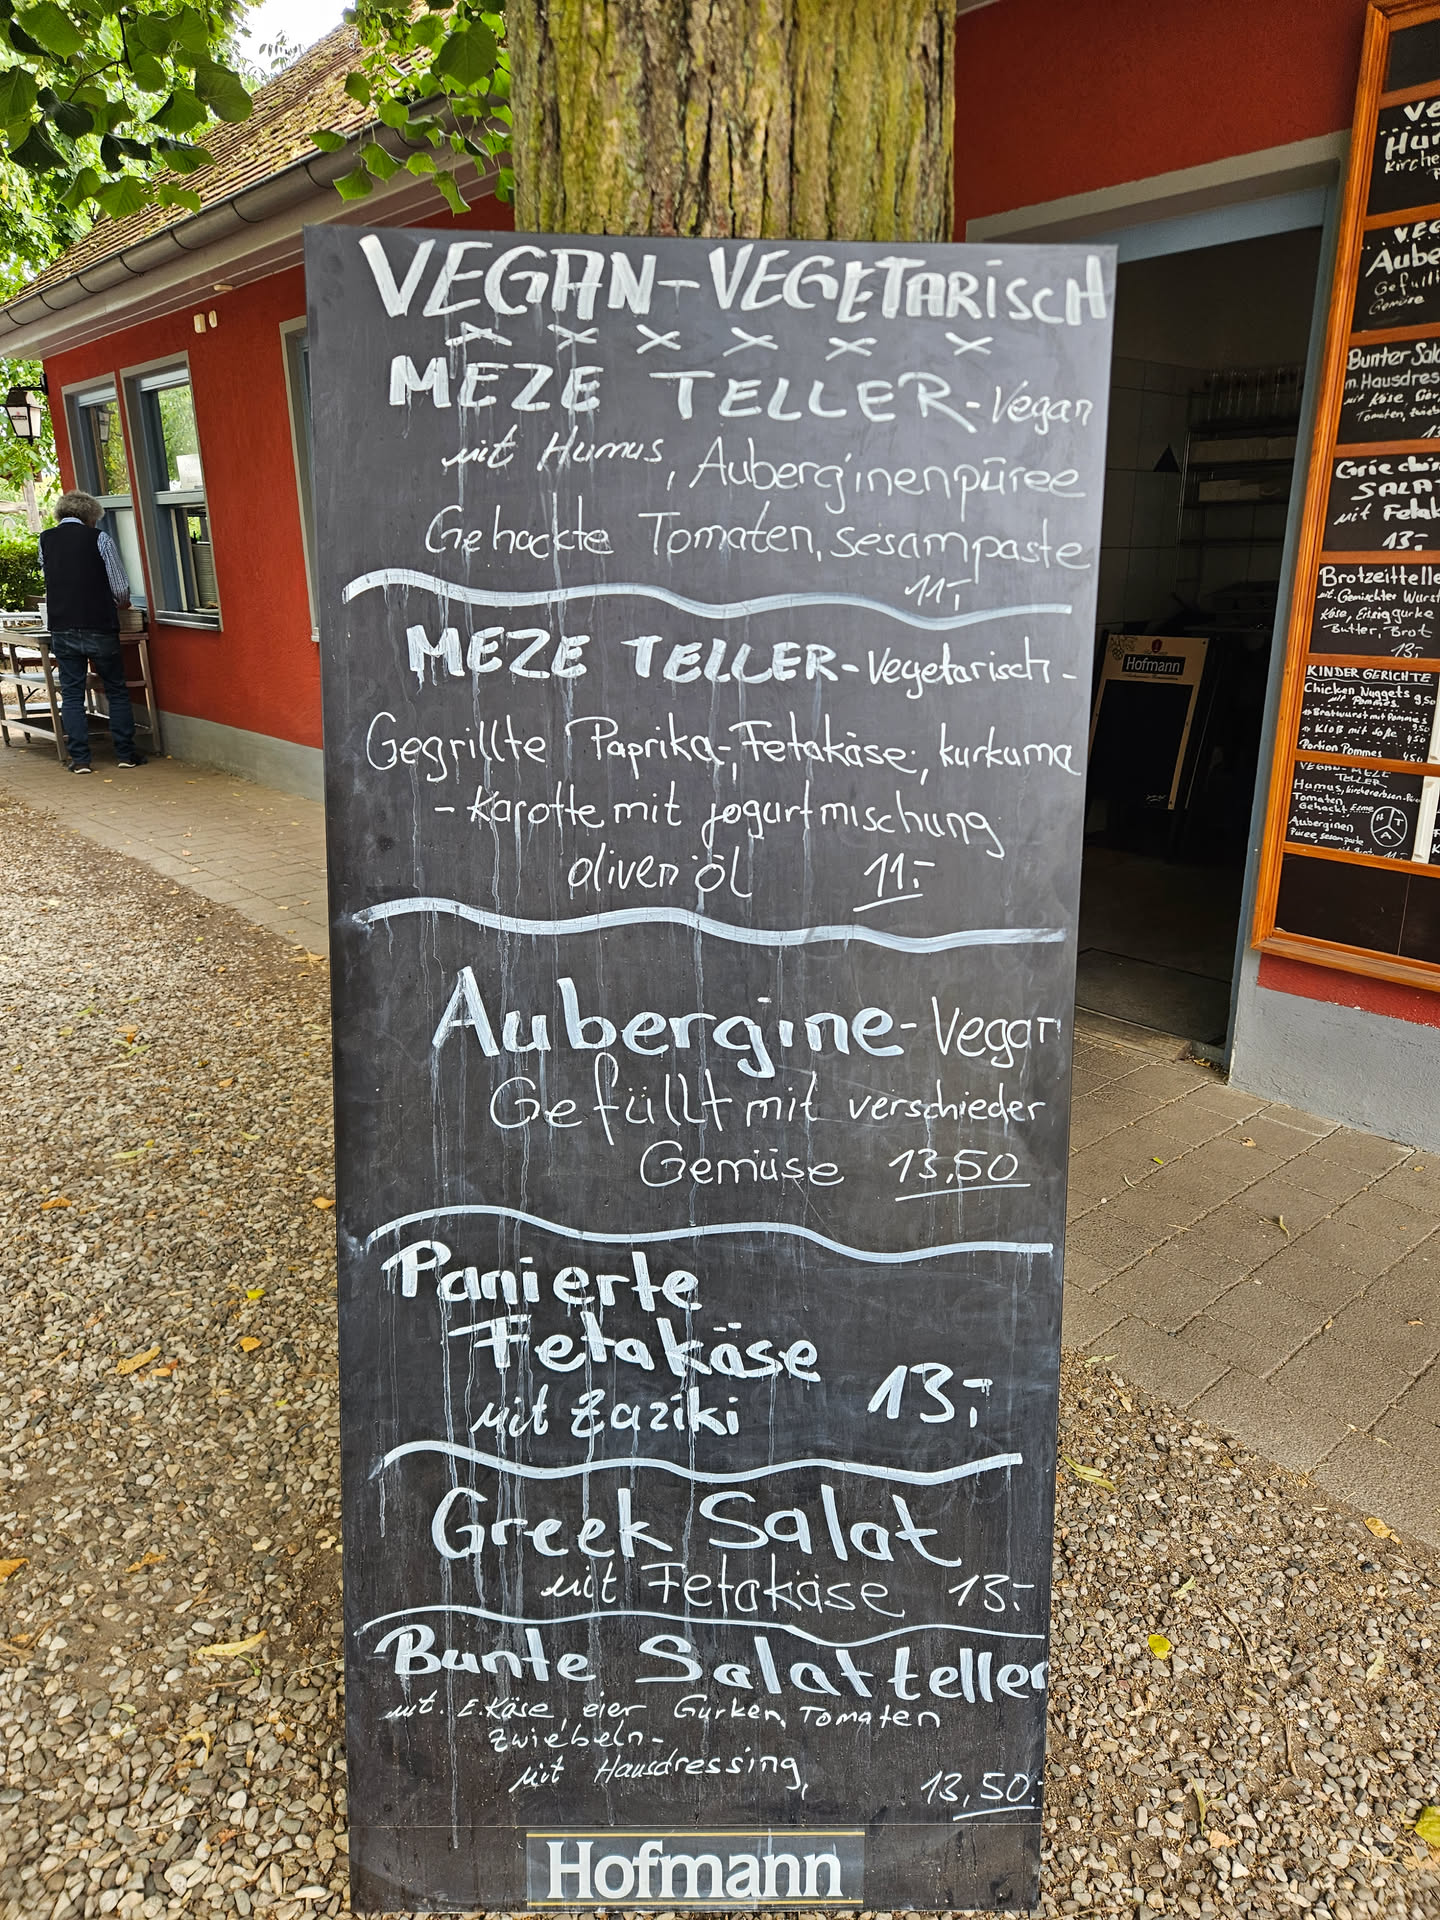 VEGAN-VEGETARISCH
x x x x x x
MEZE TELLER-Vegan
mit Humus, Auberginenpüree
Gehackte Tomaten, sesampaste
11,-
MEZE TELLER-Vegetarisch-
Gegrillte Paprika-, Fetakäse, kurkuma
- Karotte mit jogurtmischung
oliven öl 11.-
Aubergine-Vegan
Gefüllt mit verschieder
Gemüse 13,50
Panierte
Fetakäse
mit Zaziki 13,-
Greek Salat
mit Fetakäse 13.-
Bunte Salatteller
mit. E.Käse, eier Gurken, Tomaten
Zwiebeln-
mit Hausdressing, 13,50.-
Hofmann
Hofmann
Bunter
m. Hausdres
mit Käse,
Tomaten,
SALAT
mit Fetak
13.-
Brotzeittelle
mit. Gemischter Wurst
Käse, Essiggurke
Butter, Brot
13,-
KINDER GERICHTE
Chicken Nuggets 9,50
mit Pommes
Bratwurst mit Pommes
Kloß mit Soße 4,50
Portion Pommes 4,50
VEGAN- MEZE
TELLER
Humus,
Tomaten
Gehackt Ezme
Auberginen
Püree, sesampaste
11.-